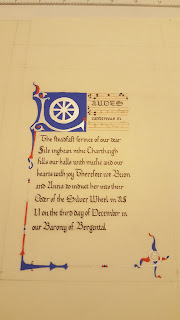 AUDES
canternus in
The steadfast service of our dear
Síle inghean mhic Charthaigh
fills our halls with music and our
hearts with joy Therefore we Buon
and Anna do induct her into their
Order of the Silver Wheel in AS
LI on the third day of December in
our Barony of Bergental